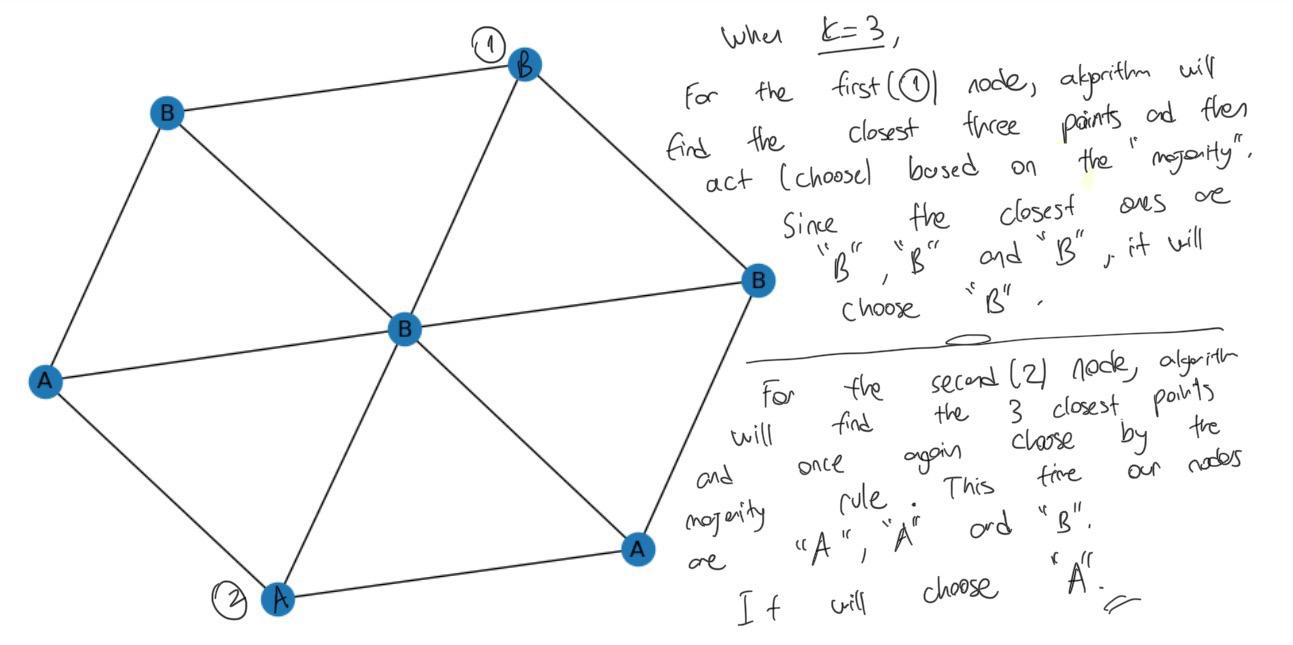 When k=3,
For the first (1) node, algorithm will
find the closest three points and then
act (choose) based on the "majority".
Since the closest ones are
"B", "B" and "B", it will
choose "B".
For the second (2) node, algorithm
will find the 3 closest points
and once again choose by the
majority rule. This time our nodes
are "A", "A" and "B".
It will choose "A".
1
B
B
B
B
A
A
2
A